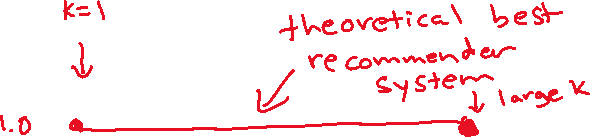 k=1
theoretical best
recommender
system
large k
1.0